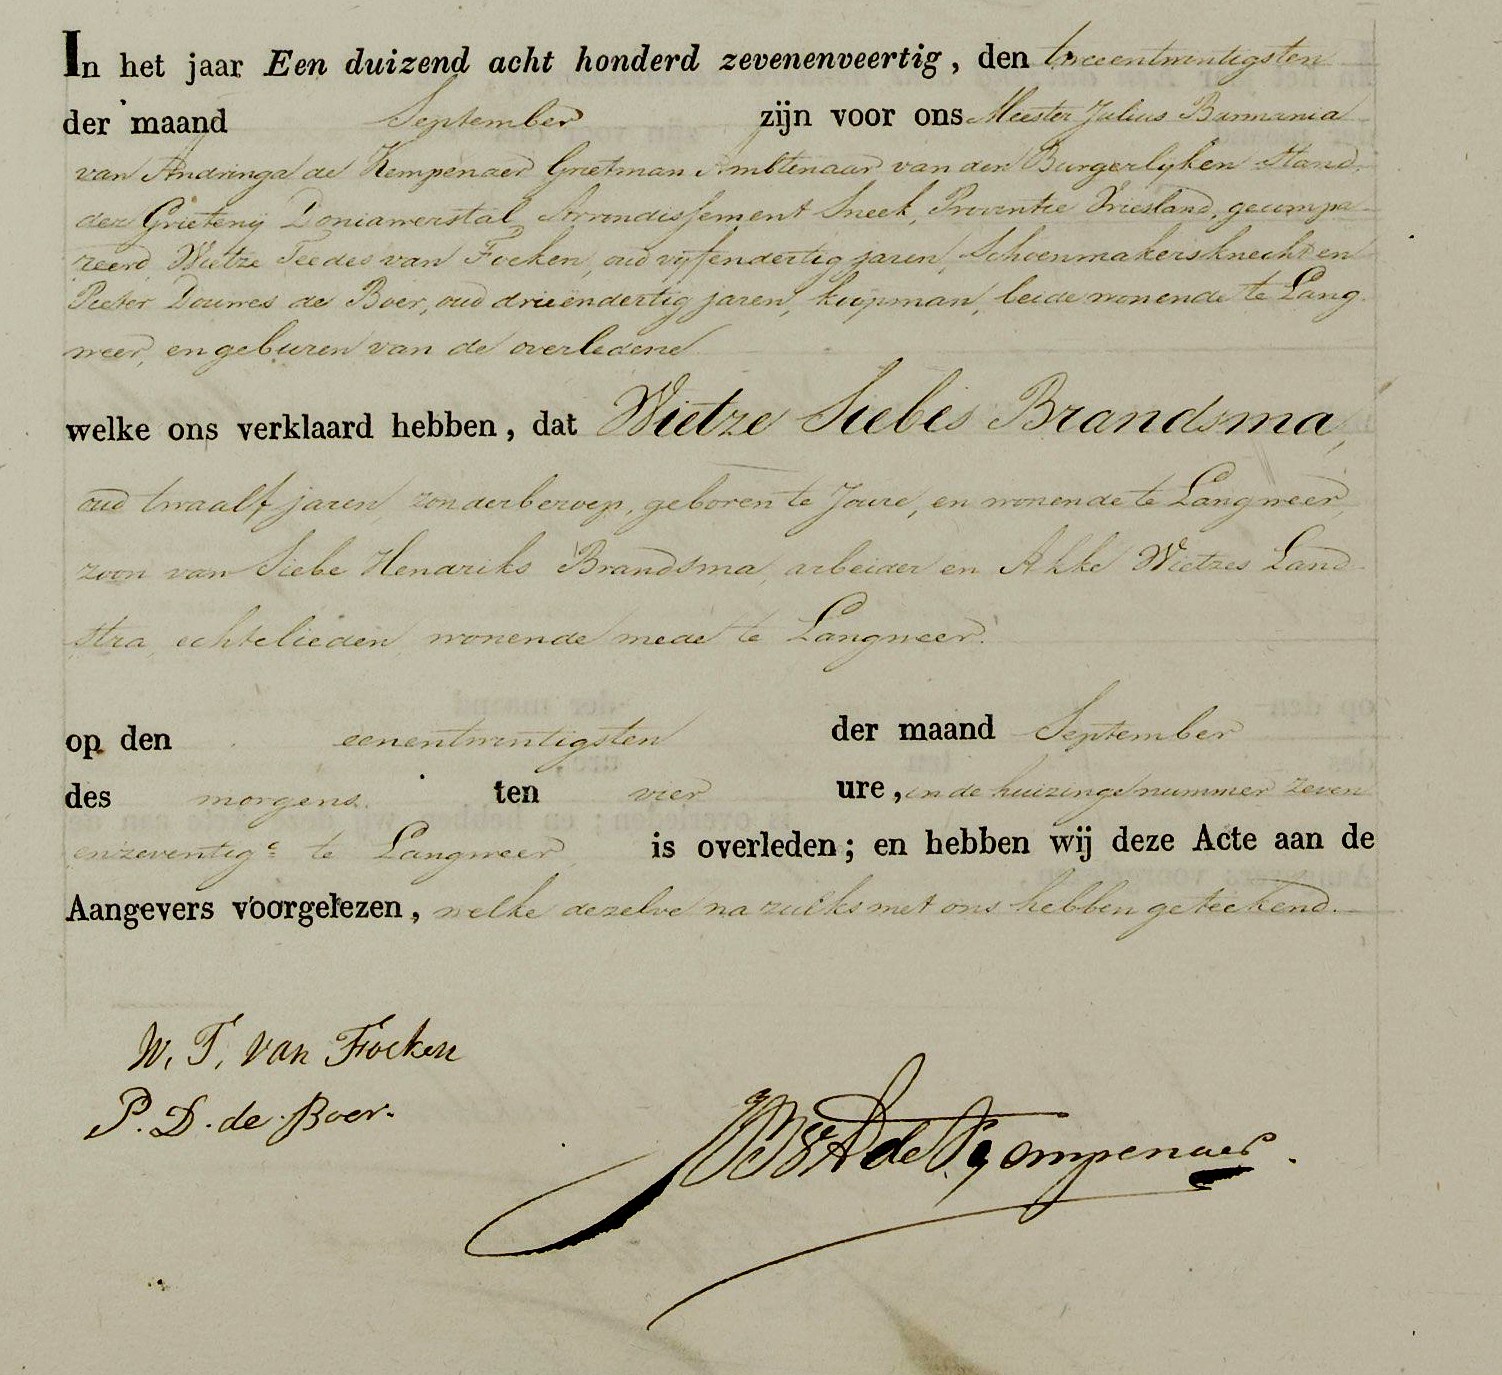 In het jaar Een duizend acht honderd zevenenveertig, den tweeentwintigsten
der maand September zijn voor ons Meester Julius Burmania
van Andringa de Kempenaer Grietman Ambtenaar van den Burgerlyken Stand
der Grietenij Doniawerstal, Arrondissement Sneek, Provintie Vriesland, gecompa-
reerd, Wietze Teedes van Focken, oud vyfendertig jaren, Schoenmakersknecht en
Pieter Douwes de Boer, oud drieëndertig jaren, koopman, beide wonende te Lang
weer, en geburen van de overledene
welke ons verklaard hebben, dat Wietze Siebes Brandsma,
oud twaalf jaren, zonder beroep, geboren te Joure, en wonende te Langweer,
zoon van Siebe Hendriks Brandsma, arbeider en Akke Wietzes Land-
stra, echtelieden, wonende mede te Langweer.
op den eenentwintigsten der maand September
des morgens ten vier ure, in de huizinge nummer zeven
en zeventig c te Langweer, is overleden; en hebben wij deze Acte aan de
Aangevers voorgelezen, welke dezelve na zulks met ons hebben geteekend.
W. T. van Focken
P. D. de Boer.
JBVA de Kempenaer.